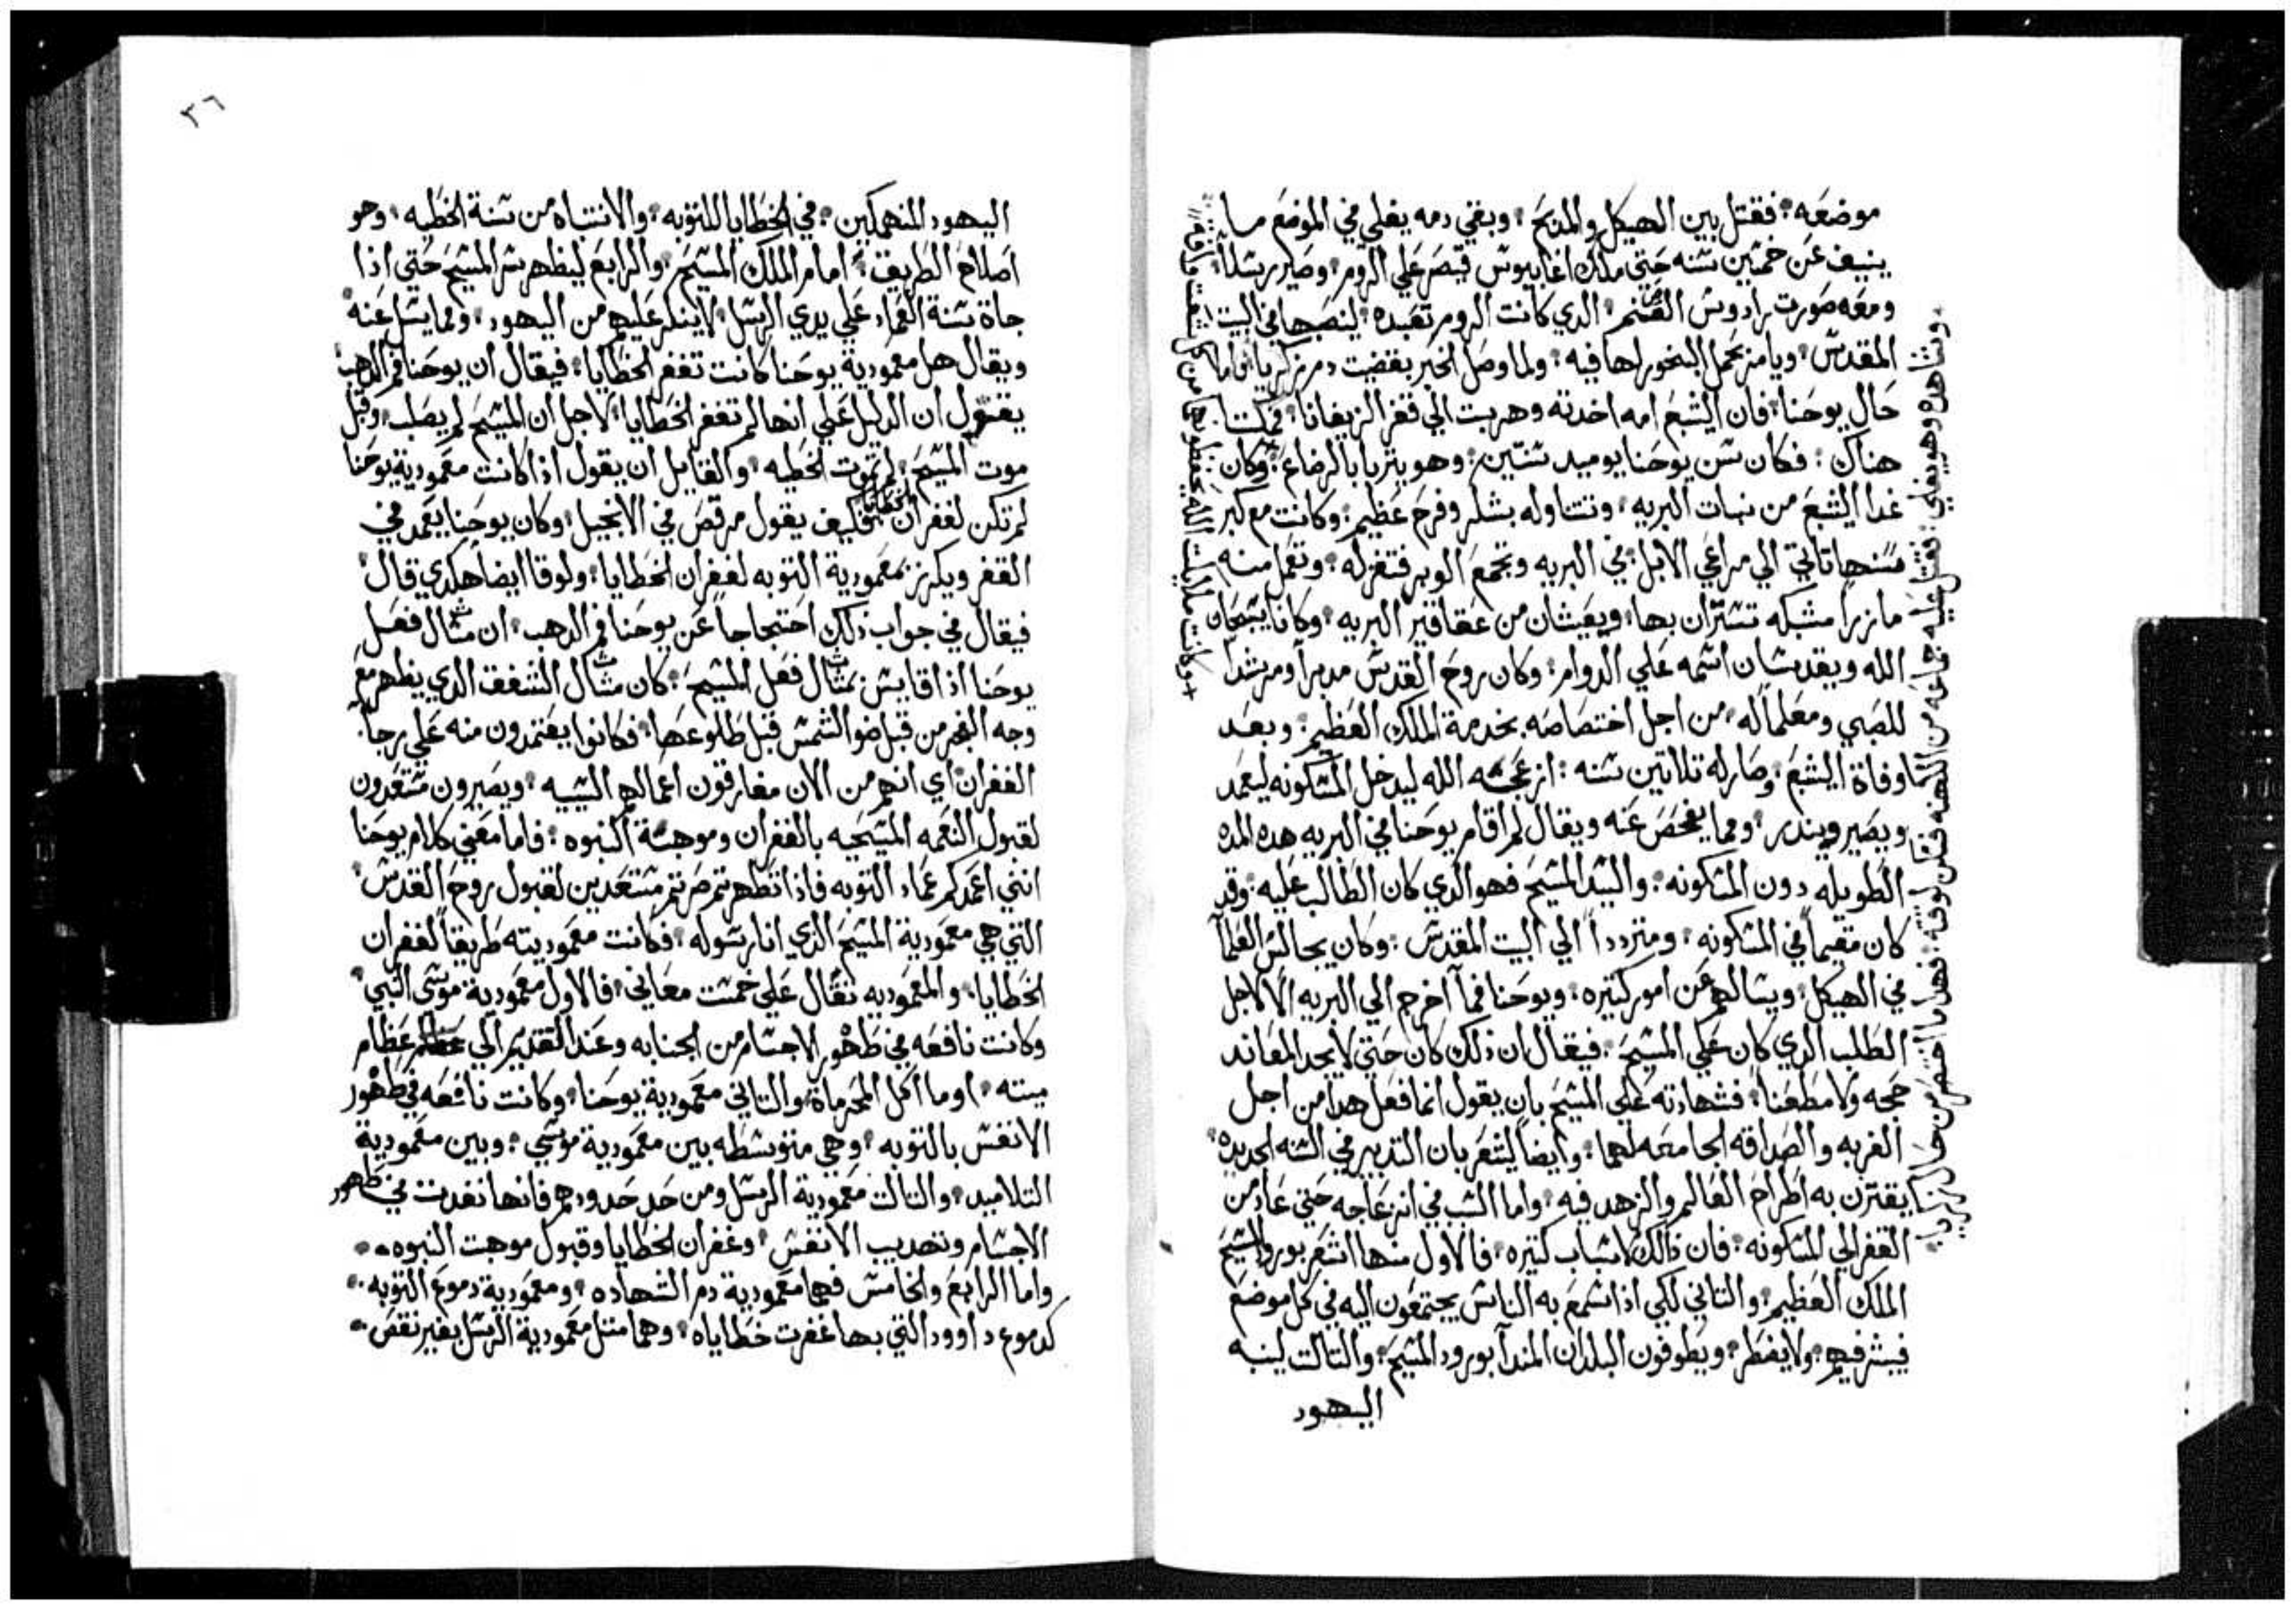 موضعه فقتل بين الهيكل والمدبح وبقي دمه يغلي في الموضع ما
ينيف عن خمسين سنه حتي ملك اغابيوس قيصر علي الروم وصير رسلاً
ومعه صورت رادوس الصنم الدي كانت الروم تعبده لينصبها في البيت
المقدس ويامر بحمل البخور لها فيه ولما وصل الخبر بقضيت دم زكريا واما
حال يوحنا فان اليشبع امه اخدته وهربت الي قفر الزيفانا فمكتا
هناك فكان سن يوحنا يوميد سنتين وهو يتربا بالرضاع وكان
غدا اليشبع من نبات البريه وتتناوله بشكر وفرح عظيم وكانت مع كبر
سنها تاتي الي مراعي الابل في البريه وتجمع الوبر فتغزله وتعمل منه
مازراً مشبكه تستتران بها ويعيشان من عقاقير البريه وكانا يسبحان
الله ويقدسان اسمه علي الدوام وكان روح القدس مدبراً ومرشداً
للصبي ومعلماً له من اجل اختصاصه بخدمة الملك العظيم وبعد
وفاة اليشبع وصار له تلاتين سنه ازعجه الله ليدخل المسكونه ليعمد
ويصير ويندر ومما يفحص عنه ويقال لم اقام يوحنا في البريه هده المده
الطويله دون المسكونه والسيد المسيح فهو الدي كان الطالب عليه وقد
كان مقيماً في المسكونه ومترددا الي البيت المقدس وكان يجالس العلما
في الهيكل ويسالهم عن امور كتيره ويوحنا فما اخرج الي البريه الا لاجل
الطلب الدي كان علي المسيح فيقال ان دلك كان حتي لا يجد المعاند
حجه ولا مطعناً فشهادته علي المسيح بان يقول انما فعل هدا من اجل
القربه والصداقه الجامعه لهما وايضاً ليشعر بان التدبير في السنه الجديده
يقترن به اطراح العالم والزهد فيه واما السبب في انزعاجه حتي عاد من
القفر الي المسكونه فان دالك لاسباب كتيره فالاول منها اشعر بورود المسيح
الملك العظيم والتاني لكي ادا تسمع به الناس يجتمعون اليه في كل موضع
فيبشر فيهم ولا يفطر ويطوفون البلدان المندآ بورود المسيح والتالت لينبه
اليهود
وشاهده وهو يغلي
جماعه من الكهنه
فهدا ما اختصر من خبر زكريا
٣٦
اليهود المنهمكين في الخطايا للتوبه والانتباه من سنة الخطيه وهو
اصلاح الطريق امام الملك المسيح والرابع ليظهر سر المسيح حتي ادا
جاة سنة العماد علي يدي الرسل لا ينكر عليهم من اليهود ومما يسل عنه
ويقال هل معمودية يوحنا كانت تغفر الخطايا فيقال ان يوحنا فم الدهب
يقول ان الدليل علي انها لم تغفر الخطايا لاجل ان المسيح لم يصلب وقبل
موت المسيح لم تموت الخطيه والقايل ان يقول ادا كانت معمودية يوحنا
لم تكن لغفران الخطايا فكيف يقول مرقص في الانجيل وكان يوحنا يعمد في
القفر ويكرز بمعمودية التوبه لغفران الخطايا ولوقا ايضاً هكدي قال
فيقال في جواب دلك احتجاجاً عن يوحنا فم الدهب ان مثال فعل
يوحنا ادا قايس بمثال فعل المسيح كان مثال الشفق الدي يظهر مع
وجه الفجر من قبل ضو الشمس قبل طلوعها فكانوا يعتمدون منه علي رجا
الغفران اي انهم من الان مفارقون اعمالهم السييه ويصيرون مستعدون
لقبول النعمه المسيحيه بالغفران وموهبة النبوه فاما معني كلام يوحنا
انني اعمدكم عماد التوبه فادا تطهرتم صرتم مستعدين لقبول روح القدس
التي هي معمودية المسيح الدي انا رسوله فكانت معموديته طريقاً لغفران
الخطايا والمعموديه تقال علي خمست معاني فالاول معمودية موسي النبي
وكانت نافعه في طهور الاجسام من الجنابه وعند التقديم الي عظام
ميته او ما اكل المحرماة والتاني معمودية يوحنا وكانت نافعه في طهور
الانفس بالتوبه وهي متوسطه بين معمودية موسي وبين معمودية
التلاميد والتالت معمودية الرسل ومن حد حدودهم فانها نفدت في طهور
الاجسام وتهديب الانفس وغفران الخطايا وقبول موهبت النبوه
واما الرابع والخامس فهما معمودية دم الشهاده ومعمودية دموع التوبه
كدموع داوود التي بها غفرت خطاياه وهما متل معمودية الرسل بغير نقص